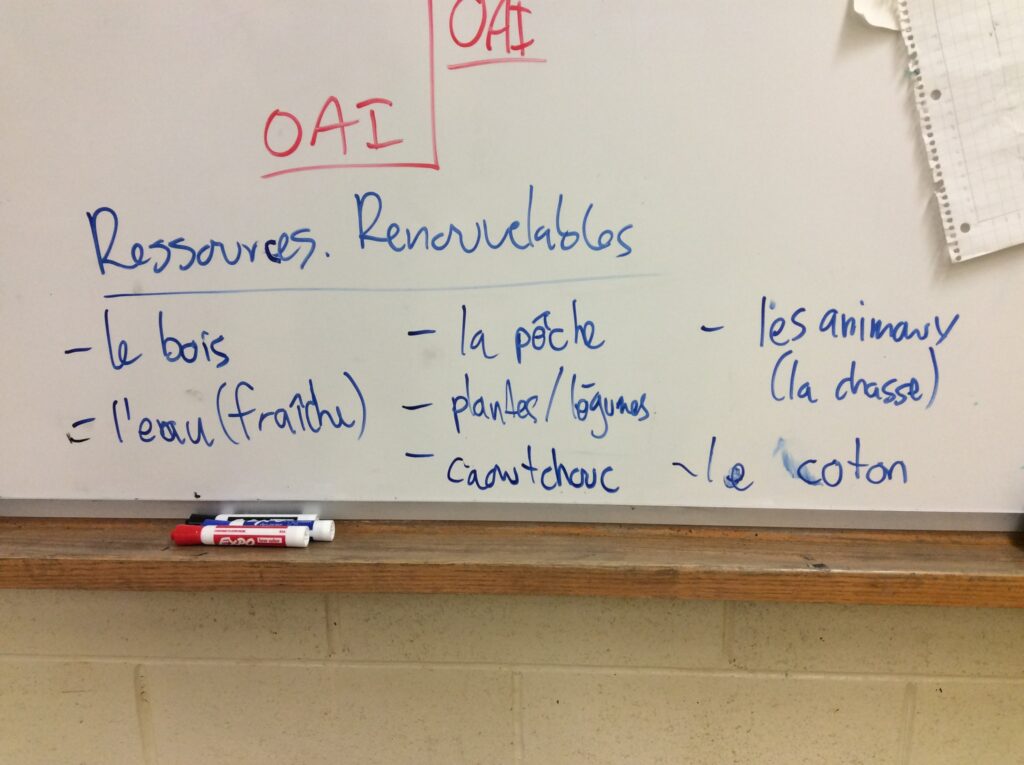 OAI
OAI
Ressources. Renouvelables
- le bois
- l'eau (fraîche)
- la pêche
- plantes/légumes
- caowtchouc
- les animaux
(la chasse)
- le coton
EXPO